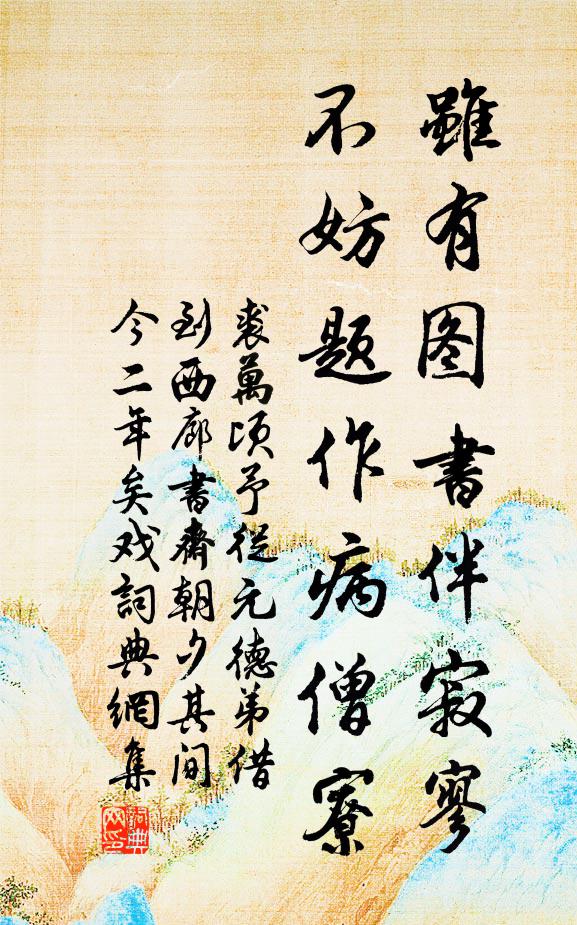 雖有图書伴寂寥
不妨题作病僧寮
裘萬顷予從元德弟借
到西廊書齋朝夕其间
今二年矣戏詞典網集